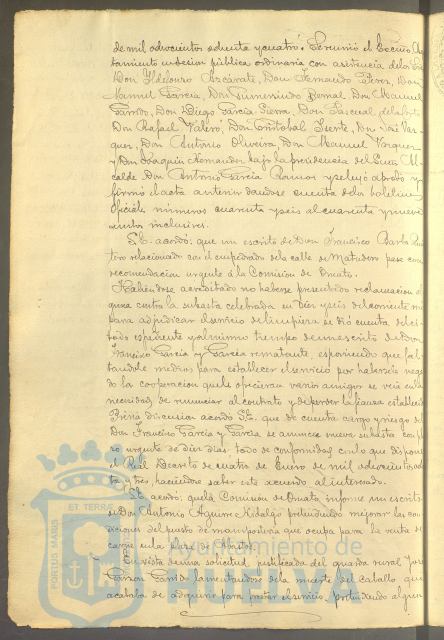 de mil ochocientos ochenta y cuatro. Se reunió el Excmo. Ayun
tamiento en sesion pública ordinaria con asistencia de los Sres.
Don Ildefonso Azcárate, Don Fernando Perez, Don
Manuel García, Don Gumersindo Bernal, Don Manuel
Garrido, Don Diego García Sierra, Don Pascual
Don Rafael Valero, Don Cristobal Iserte, Don José Vaz
quez, Don Antonio Oliveira, Don Manuel Vazquez
y Don Joaquin Hernandez bajo la presidencia del Excmo Al
calde Don Antonio García Ramos y se leyó aprobó y
firmó el acta anterior dandose cuenta de los boletines
oficiales números cuarenta y seis al cuarenta y nueve
ambos inclusives.
S.E. acordó: que un escrito de Don Francisco
relacionado con el empedrado de la calle de Matadero pase con
recomendacion urgente á la Comision de Ornato.
Habiendose acreditado no haberse presentado reclamacion al
guna contra la subasta celebrada en diez y seis del corriente mes
para adjudicar el servicio de limpieza se dió cuenta del ci
tado espediente y al mismo tiempo de un escrito de Don
Francisco García y García rematante, esponiendo que fal
tandole medios para establecer el servicio por haberseis nega
do la cooperacion que le ofrecieran varios amigos se veia en la
necesidad de renunciar al contrato y de perder la fianza establecida
Prévia discusion acordó S.E. que de cuenta cargo y riesgo de
Don Francisco García y García se anuncie nueva subasta con
ro urgente de diez dias todo de conformidad con lo que dispone
el Real Decreto de cuatro de Enero de mil ochocientos
ta y tres, haciendose saber este acuerdo al interesado.
S.E. acordó: que la Comision de Ornato informe un escrito
de Don Antonio Aguirre Hidalgo pretendiendo mejorar las con
diciones del puesto de mamposteria que ocupa para la venta de
carne en la plaza de Abastos.
En vista de una solicitud justificada del guarda rural José
Garzon Garrido lamentandose de la muerte del caballo que
acababa de adquirir para prestar el servicio, pretendiendo alguna
PORTUS MARIS
ET TERRAE
Ayuntamiento de
HUELVA